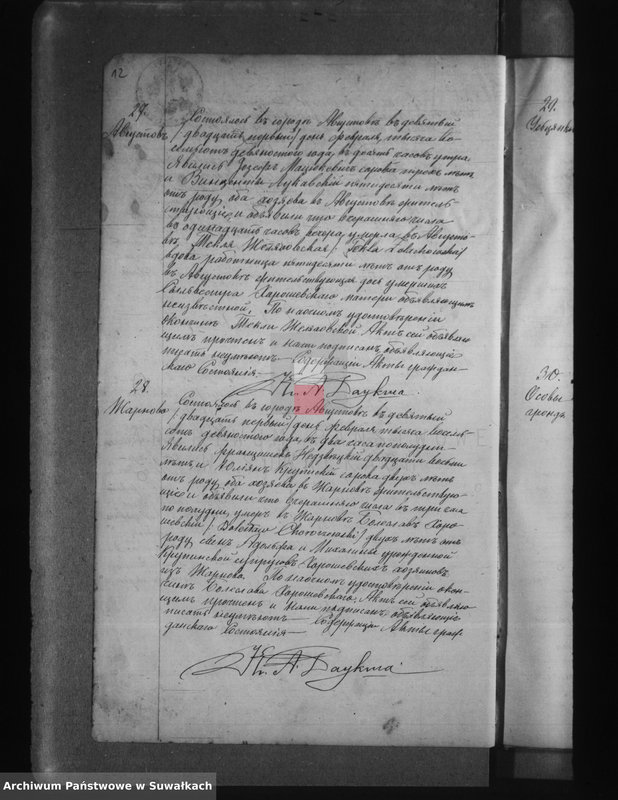 12
27.
Августовъ
Состоялось въ городѣ Августовѣ въ девятый
/двадцать первый/ день Февраля тысяча во
семьсотъ девяностого года, въ десять часовъ утра.
Явились Іосифъ сорока трехъ лѣтъ
и Викентій Лукавскій пятидесяти лѣтъ
отъ роду, оба хозяева въ Августовѣ житель-
ствующіе, и объявили что вчерашняго числа
въ одинадцать часовъ вечера, умерла въ Августо-
вѣ, Текля /Tekla
вдова работница пятидесяти лѣтъ отъ роду
въ Августовѣ жительствующая дочь умершаго
Сильвестра Харошевскаго матери объявляющимъ
неизвѣстной. По настоящемъ удостовѣреніи
кончины Текли Актъ сей объявля
щимъ прочтенъ и нами подписанъ, объявляющіе
писать неумѣютъ. Содержащій Акты граждан-
скаго Состоянія
Кс. А. Даукша.
28.
Жарново
Состоялось въ городѣ Августовѣ въ девятый
/двадцать первый/ день Февраля тысяча восемь
сотъ девяностого года, въ два часа пополудни.
Явились Францишекъ двадцати восьми
лѣтъ и Юліянъ Крупскій сорока двухъ лѣтъ
отъ роду, оба хозяева въ Жарновѣ жительствую-
щіе и объявили что вчерашняго числа въ три часа
по полудни, умеръ въ Жарновѣ Болеславъ Харо-
шевскій /Bolesław Choroszewski/ двухъ лѣтъ отъ
роду, сынъ Адольфа и Михалины урожденной
Крупинской супруговъ Харошевскихъ хозяевъ
изъ Жарнова. По настоящемъ удостовѣреніи кон-
чины Болеслава Харошевскаго, Актъ сей объявляю-
щимъ прочтенъ и нами подписанъ, объявляющіе
писать неумѣютъ. Содержащій Акты граж-
данскаго Состоянія
Кс. А. Даукша.
29.
30.
Особы
грондъ
Archiwum Państwowe w Suwałkach